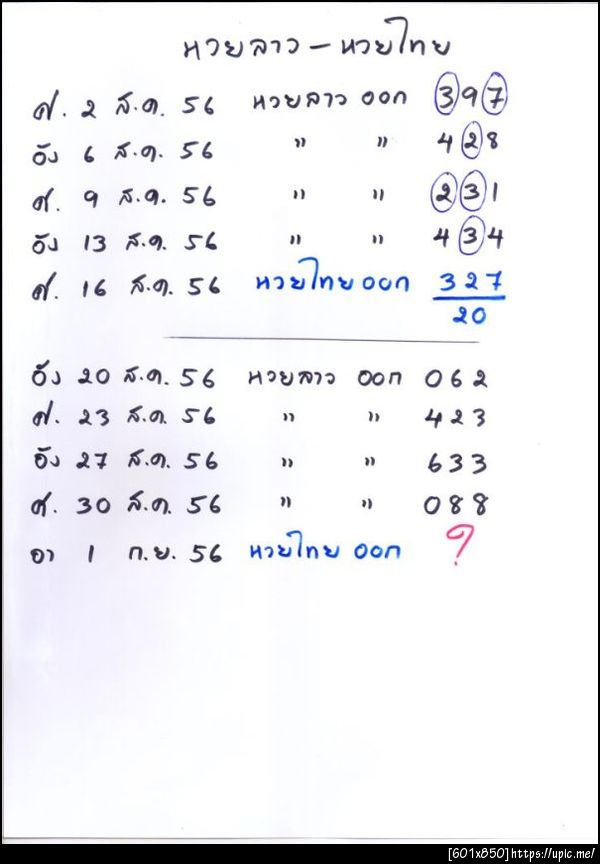 หวยลาว – หวยไทย
ศ. 2 ส.ค. 56 หวยลาว ออก 397
อัง 6 ส.ค. 56 " " 428
ศ. 9 ส.ค. 56 " " 231
อัง 13 ส.ค. 56 " " 434
ศ. 16 ส.ค. 56 หวยไทย ออก 327
20
อัง 20 ส.ค. 56 หวยลาว ออก 062
ศ. 23 ส.ค. 56 " " 423
อัง 27 ส.ค. 56 " " 633
ศ. 30 ส.ค. 56 " " 088
อา 1 ก.ย. 56 หวยไทย ออก ?
[601x850]https://upic.me/